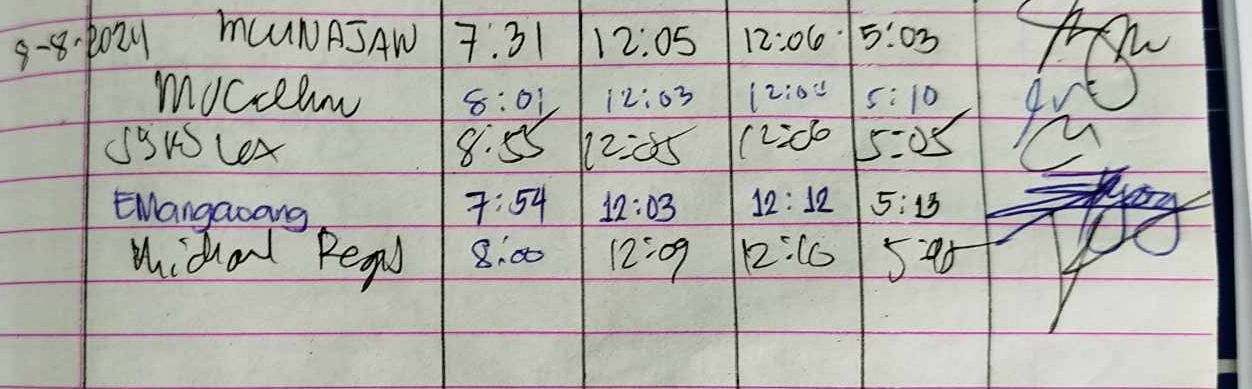 8-8-2024 MCUNAJAW 7:31 12:05 12:06 5:03
8:01 12:03 5:10
Lex 8:55 12:05 12:06 5:05
EMangaoang 7:54 12:03 12:12 5:13
Michael 8:00 12:09 12:10